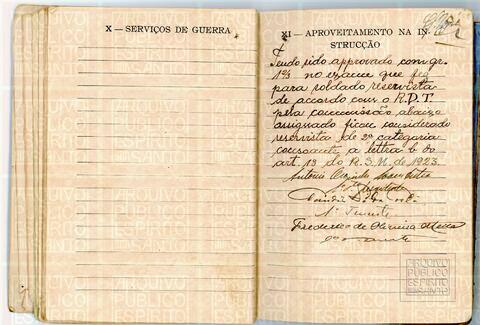 X — SERVIÇOS DE GUERRA
XI — APROVEITAMENTO NA IN-
STRUCÇÃO
Tendo sido approvado com gr.
no exame que fez
para soldado reservista
de accordo com o R.D.T.
pela commissão abaixo
assignado ficou considerado
reservista de 2ª categoria
consoante a lettra b do
art. 13 do R.S.M. de 1923.
Antonio
1º Tenente
Frederico de Oliveira
ARQUIVO
PÚBLICO
ESPÍRITO
SANTO